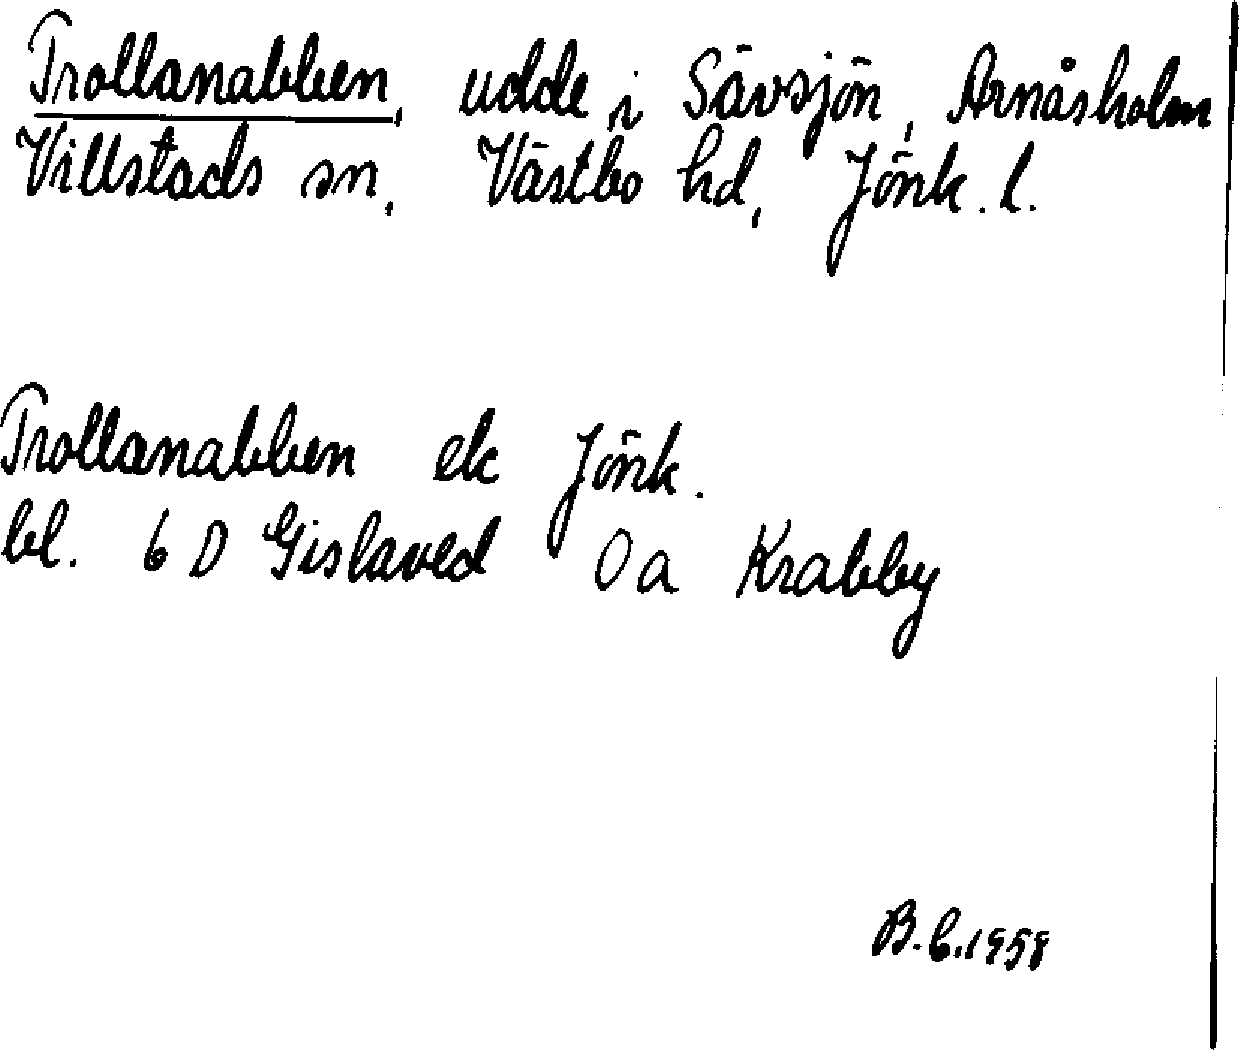 Trollanabben, udde i Sävsjön, Arnåsholm
Villstads sn, Västbo hd, Jönk. l.
Trollanabben ek Jönk.
bl. 6 D Gislaved 0 a Krabby
B. C. 1958